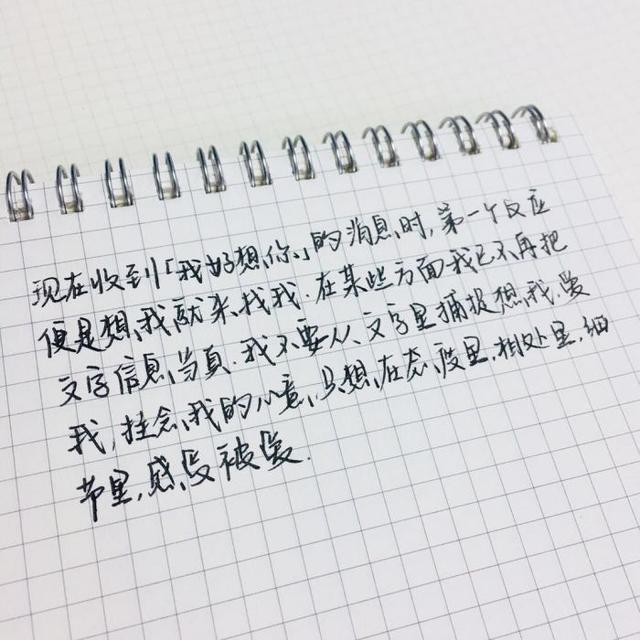 现在收到「我好想你」的消息时,第一个反应
便是想我就来找我.在某些方面我已不再把
文字信息当真.我不要从文字里捕捉想我,爱
我,挂念我的心意,只想在态度里,相处里,细
节里,感受被爱.